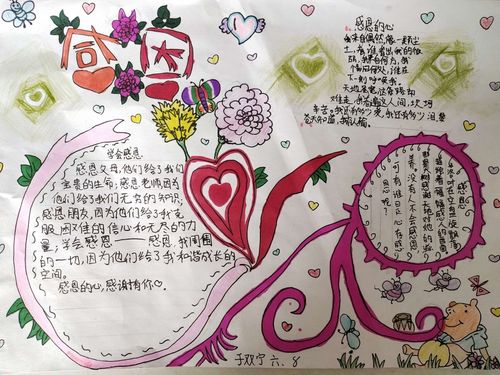 感恩
感恩的心
我来自偶然,像一颗尘
土,有谁看出我的脆
弱,我来自何方,我
情归何处,谁在
下一刻呼唤我,
天地虽宽,这条路却
难走,我看遍这人间,坎坷
辛苦。我还有多少爱,我还有多少泪,要
苍天知道,我不认输。
学会感恩
感恩父母,他们给予我们
宝贵的生命;感恩老师,因为
他们给了我们无穷的知识;
感恩朋友,因为他们给了我克
服困难的信心和无尽的力
量。学会感恩——感恩我周围
的一切,因为他们给了我和谐成长的
空间。
感恩的心,感谢有你
感恩
养。没有人不会感恩
可有谁日日心存感
恩呢?
于双宁 六、8